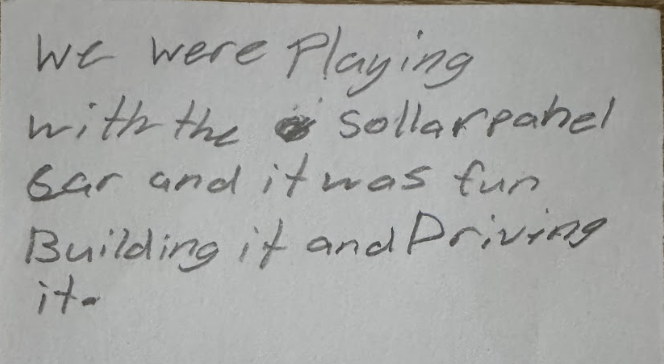 We were Playing
with the sollarpanel
car and it was fun
Building it and Driving
it.